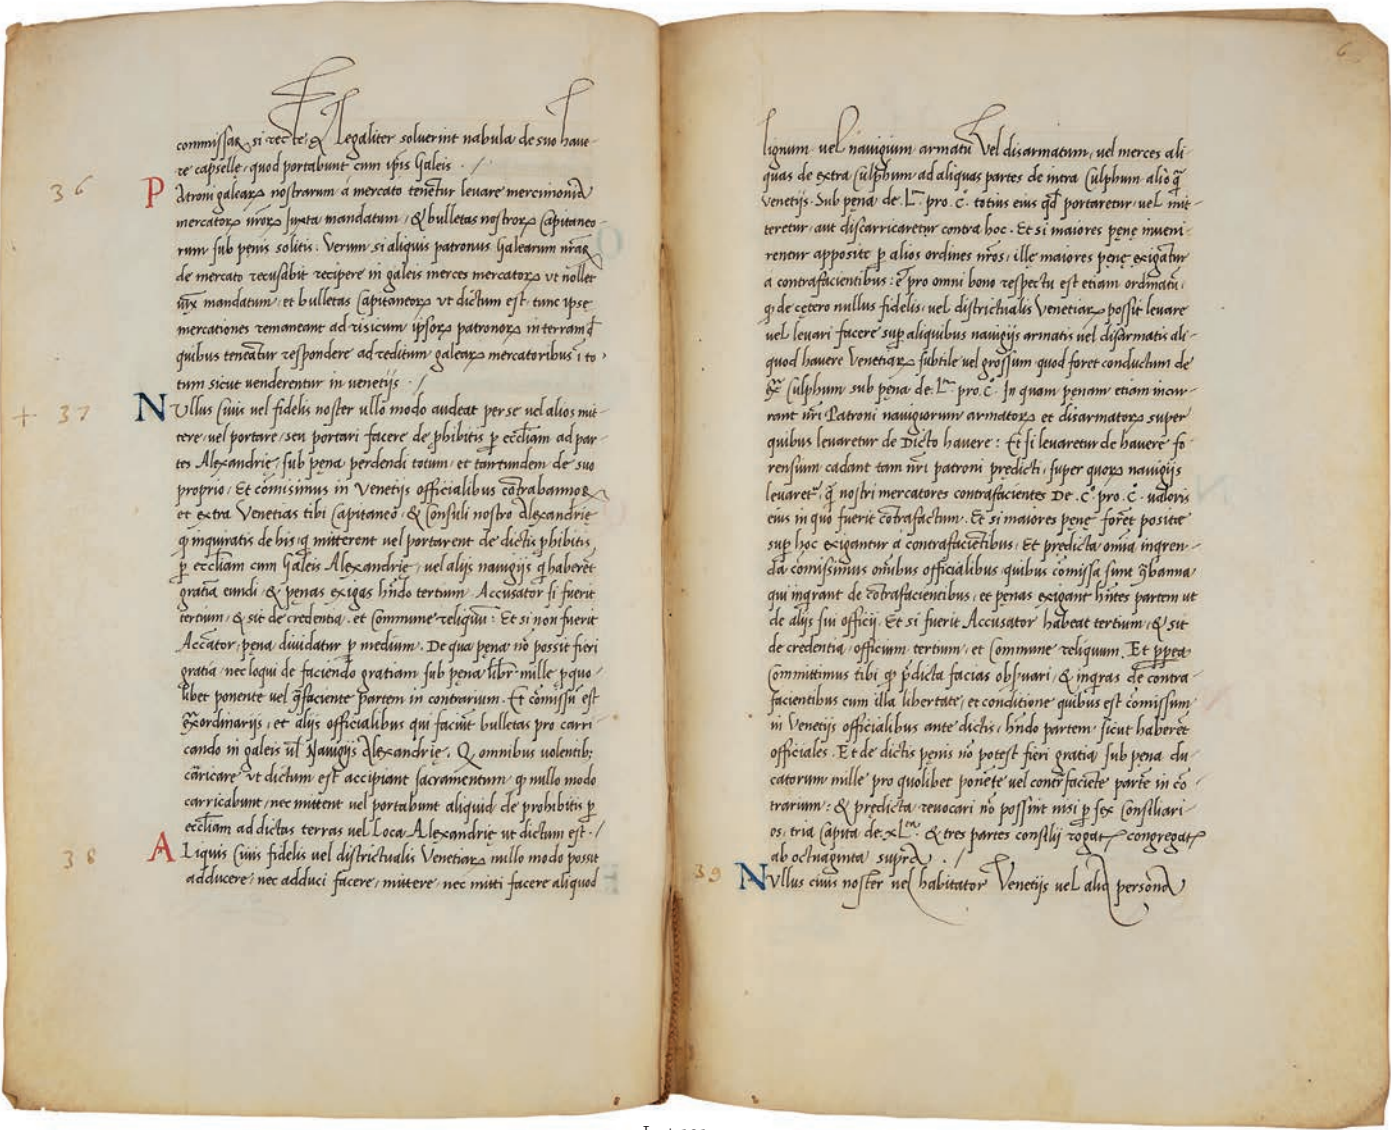 commissar si recte & legaliter soluerint nabula de suo haue-
re capselle, quod portabunt cum ipis Galeis . /
36
PAtroni galearꝝ nostrarum a mercato tenetur leuare mercimonia
mercatorꝝ nrorꝝ Juxta mandatum, & bulletas nostrorꝝ Capitaneo-
rum sub penis solitis. Verum si aliquis patronus Galearum nrarꝝ
de mercato recusabit recipere in galeis merces mercatorꝝ vt nollet
mandatum, et bulletas Capitaneorꝝ vt dictum est, tunc ipse
mercationes remaneant ad risicum ipsorꝝ patronorꝝ in terram
quibus teneatur respondere ad reditum galearꝝ mercatoribus i to-
tum sicut venderentur in venetijs . /
+ 37
NUllus Ciuis uel fidelis noster ullo modo audeat per se uel alios mit-
tere, uel portare, seu portari facere de phibitis p eccliam ad par-
tes Alexandrię, sub pęna perdendi totum, et tantundem de suo
proprio, Et comisimus in Venetijs officialibus cotrabannorꝝ
et extra Venetias tibi Capitaneo, & Consuli nostro Alexandrie
q inquiratis de his, q mitterent uel portarent de dictis phibitis
p eccliam cum Galeis Alexandrię, uel alijs nauigijs q haberet
gratia eundi, & penas exigas hndo tertium. Accusator si fuerit
tertium, & sit de credentia, et Commune reliquu: Et si non fuerit
Accator, pena diuidatur p medium. De qua pęna no possit fieri
gratia, nec loqui de faciendo gratiam sub pęna librr mille p quo-
libet ponente uel faciente partem in contrarium. Et comissu est
exordinarijs, et alijs officialibus qui faciut bulletas pro carri-
cando in galeis ul Nauigijs Alexandrię. Q, omnibus uolentib;
caricare vt dictum est accipiant sacramentum, q nullo modo
carricabunt, nec mittent uel portabunt aliquid de prohibitis p
eccliam ad dictas terras uel Loca Alexandrię ut dictum est . /
38
ALiquis Ciuis fidelis uel districtualis Venetiarꝝ nullo modo possit
adducere, nec adduci facere, mittere, nec mitti facere aliquod
6
lignum uel nauigium armatu Vel disarmatum, uel merces ali-
quas de extra Culphum ad aliquas partes de intra Culphum alio q
venetijs. Sub pena de. L. pro. C. totius eius qd portaretur, uel mit-
teretur, aut discarricaretur contra hoc. Et si maiores pęnę inueni-
rentur apposite p alios ordines nros, ille maiores penę exigatur
a contrafacientibus: e pro omni bono respectu est etiam ordinatu,
q de cętero nullus fidelis, uel districtualis Venetiarꝝ possit leuare
uel leuari facere sup aliquibus nauigijs armatis uel disarmatis ali-
quod hauere Venetiarꝝ subtile uel grossum quod foret conductum de
Culphum sub pęna de. L. pro. C. In quam penam etiam incur-
rant nri Patroni nauigiorum armatorꝝ et disarmatorꝝ super
quibus leuaretur de Dicto hauere: Et si leuaretur de hauere fo-
rensium cadant tam nri patroni prędicti, super quorꝝ nauigijs
leuaret, q nostri mercatores contrafacientes De. C. pro. C. ualoris
eius in quo fuerit cotrafactum. Et si maiores pęnę foret positie
sup hoc exigantur a contrafacietibus, Et prędicta omia inqren-
da comissimus omibus officialibus quibus comissa sunt banna
qui inqrant de cotrafacientibus, et penas exigant hntes partem ut
de alijs sui officij. Et si fuerit Accusator habeat tertium, & sit
de credentia, officium tertium, et Commune reliquum. Et pptea
Committimus tibi q pdicta facias obsuari, & inqras de contra-
facientibus cum illa libertate, et conditione quibus est comissum
in Venetijs officialibus ante dictis, hndo partem sicut haberet
officiales. Et de dictis penis no potest fieri gratia sub pęna du-
catorum mille pro quolibet ponete uel contrfaciete parte in co-
trarium: & prędicta reuocari no possint nisi p sex Consiliari-
os, tria Capita de. xL. & tres partes consilij rogat congregat
ab octuaginta supra . /
39
NUllus ciuis noster uel habitator Venetijs uel alia persona